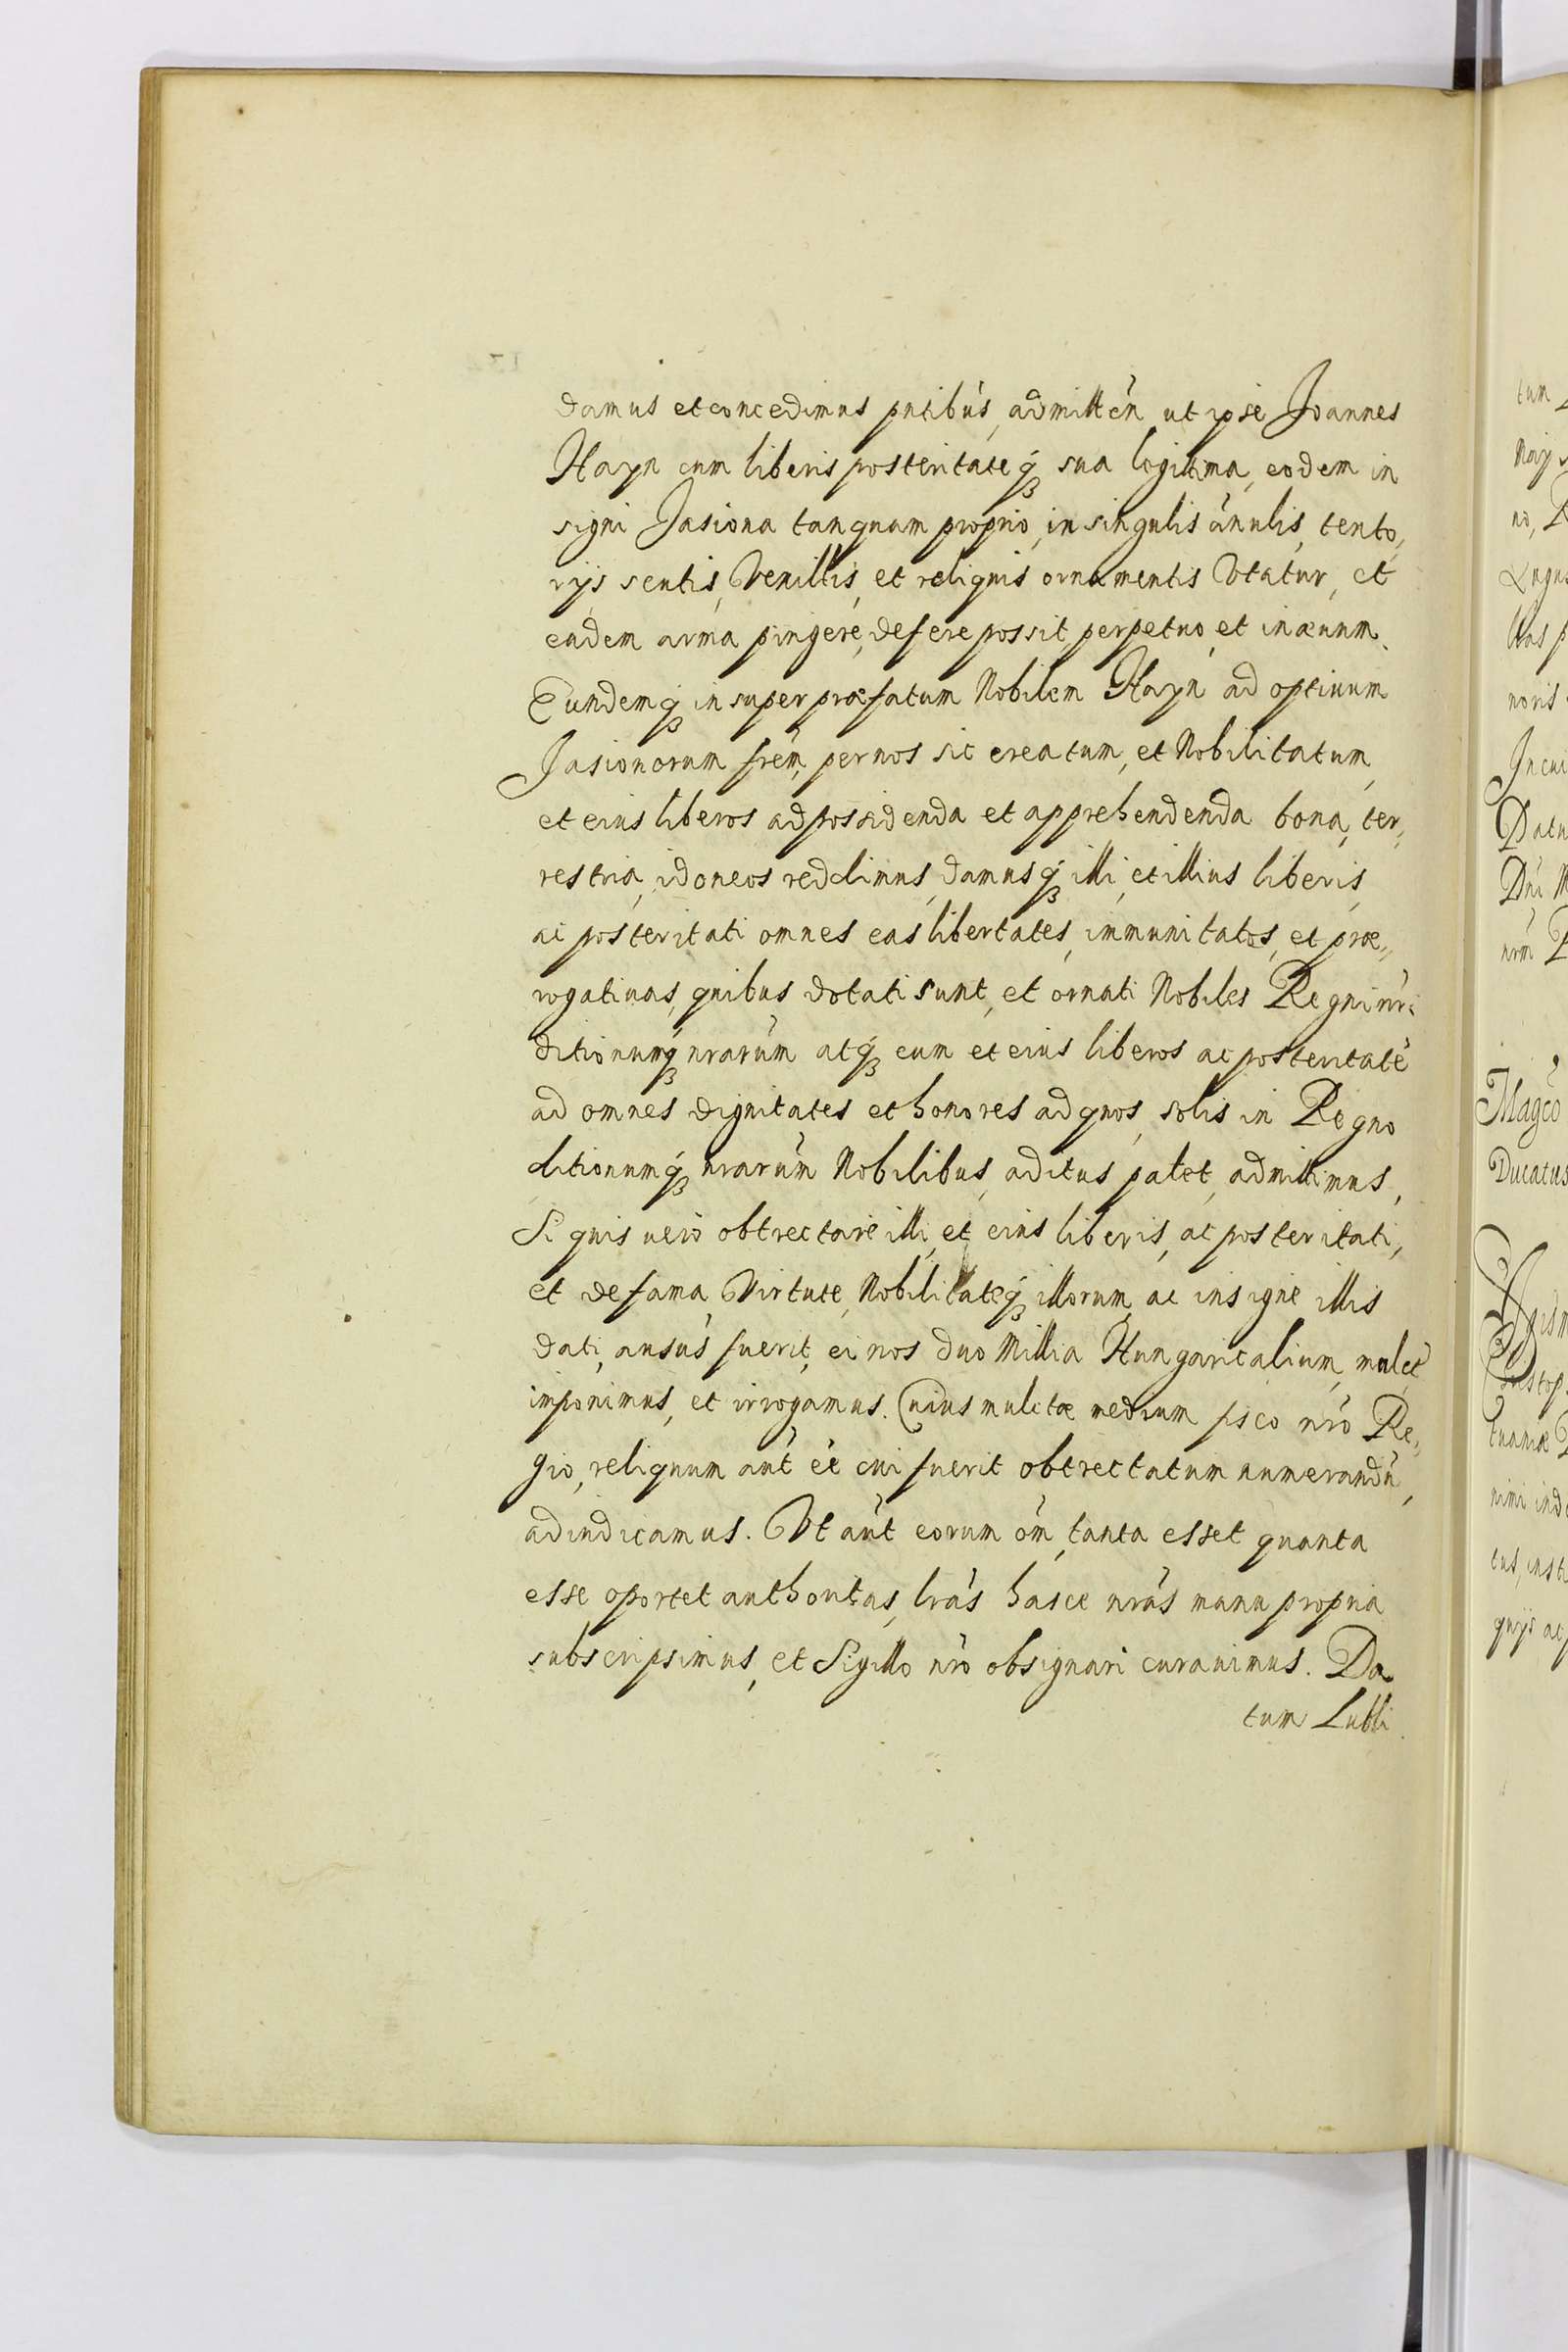 damus et concedimus pntibus, admitten ut ipse Joannes
Hayn cum liberis posteritateq sua legitima, eodem in
signi Jasiona tanquam proprio, in singulis anulis, tento,
rijs scutis, Vexillis, et reliquis ornamentis Utatur, et
eadem arma pingere, defere possit, perpetuo, et in aeuum.
Eundemq insuper praefatum Nobilem Hayn ad optiuum
Jasionorum frem, per nos sic creatum, et Nobilitatum,
et eius liberos ad possidenda et apprehendenda bona, ter,,
restria, idoneos reddimus, damusq illi, et illius liberis,
ac posteritati omnes eas libertates, immunitates, et prae,,
rogatiuas, quibus dotati sunt, et ornati Nobiles Regni nri
ditionumq nrarum atq eum et eius liberos ac posteritate
ad omnes dignitates et honores ad quos, solis in Regno
ditionumq nrarum Nobilibus, aditus patet, admittimus,
Si quis uero obtrectare illi, et eius liberis, ac posteritati,
et de fama, Virtute, Nobilitateq illorum, ac insigne illis
dati, ausus fuerit, ei nos duo Millia Hungaricalium, mulct
imponimus, et irrogamus. Cuius mulctae medium fisco nro Re,,
gio, reliquum aut ei cui fuerit obtrectatum numerandu,
adiudicamus. Vt aut eorum om, tanta esset quanta
esse oportet authoritas, lras hasce nras manu propria
subscripsimus, et Sigillo nro obsignari curauimus. Da
tum Lubli
tum
no,
noris
Datu
Dni M
nrm
Magco
Ducatus